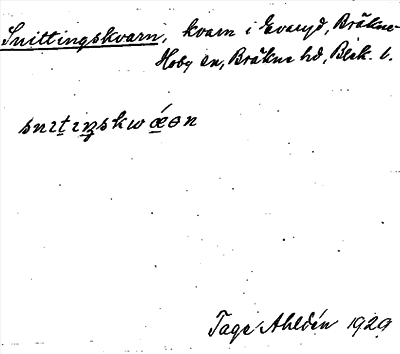 Snittingskvarn, kvarn i Evaryd, Bräkne-
Hoby sn, Bräkne hd, Blek. l.
snɪtɪŋskwǽən
Tage Ahldén 1929